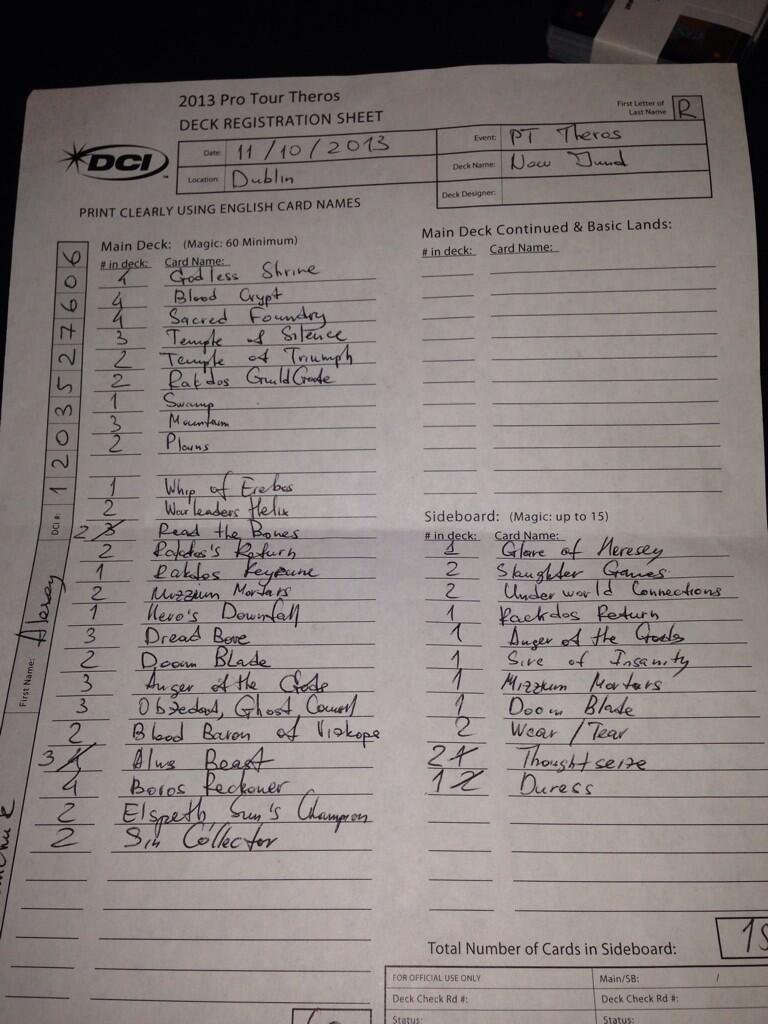 2013 Pro Tour Theros
DECK REGISTRATION SHEET
First Letter of Last Name R
DCI
Date: 11/10/2013
Location: Dublin
Event: PT Theros
Deck Name: Now Jund
Deck Designer:
PRINT CLEARLY USING ENGLISH CARD NAMES
DCI #: 1 2 0 3 5 2 7 6 0 6
First Name: Alexey
Main Deck: (Magic: 60 Minimum)
# in deck: Card Name:
4 Godless Shrine
4 Blood Crypt
4 Sacred Foundry
3 Temple of Silence
2 Temple of Triumph
2 Rakdos GuildGate
1 Swamp
3 Mountain
2 Plains
1 Whip of Erebos
2 Warleaders Helix
2 3 Read the Bones
2 Rakdos's Return
1 Rakdos Keyrune
2 Mizzium Mortars
1 Hero's Downfall
3 Dread Bore
2 Doom Blade
3 Anger of the Gods
3 Obzedat, Ghost Council
2 Blood Baron of Vizkopa
3 4 Alms Beast
4 Boros Reckoner
2 Elspeth, Sun's Champion
2 Sin Collector
Main Deck Continued & Basic Lands:
# in deck: Card Name:
Sideboard: (Magic: up to 15)
# in deck: Card Name:
1 Glare of Heresey
2 Slaughter Games
2 Underworld Connections
1 Rackdos Return
1 Anger of the Gods
1 Sire of Insanity
1 Mizzium Mortars
1 Doom Blade
2 Wear / Tear
2 1 Thoughtseize
1 2 Duress
Total Number of Cards in Sideboard: 15
FOR OFFICIAL USE ONLY
Main/SB: /
Deck Check Rd #:
Deck Check Rd #:
Status:
Status: